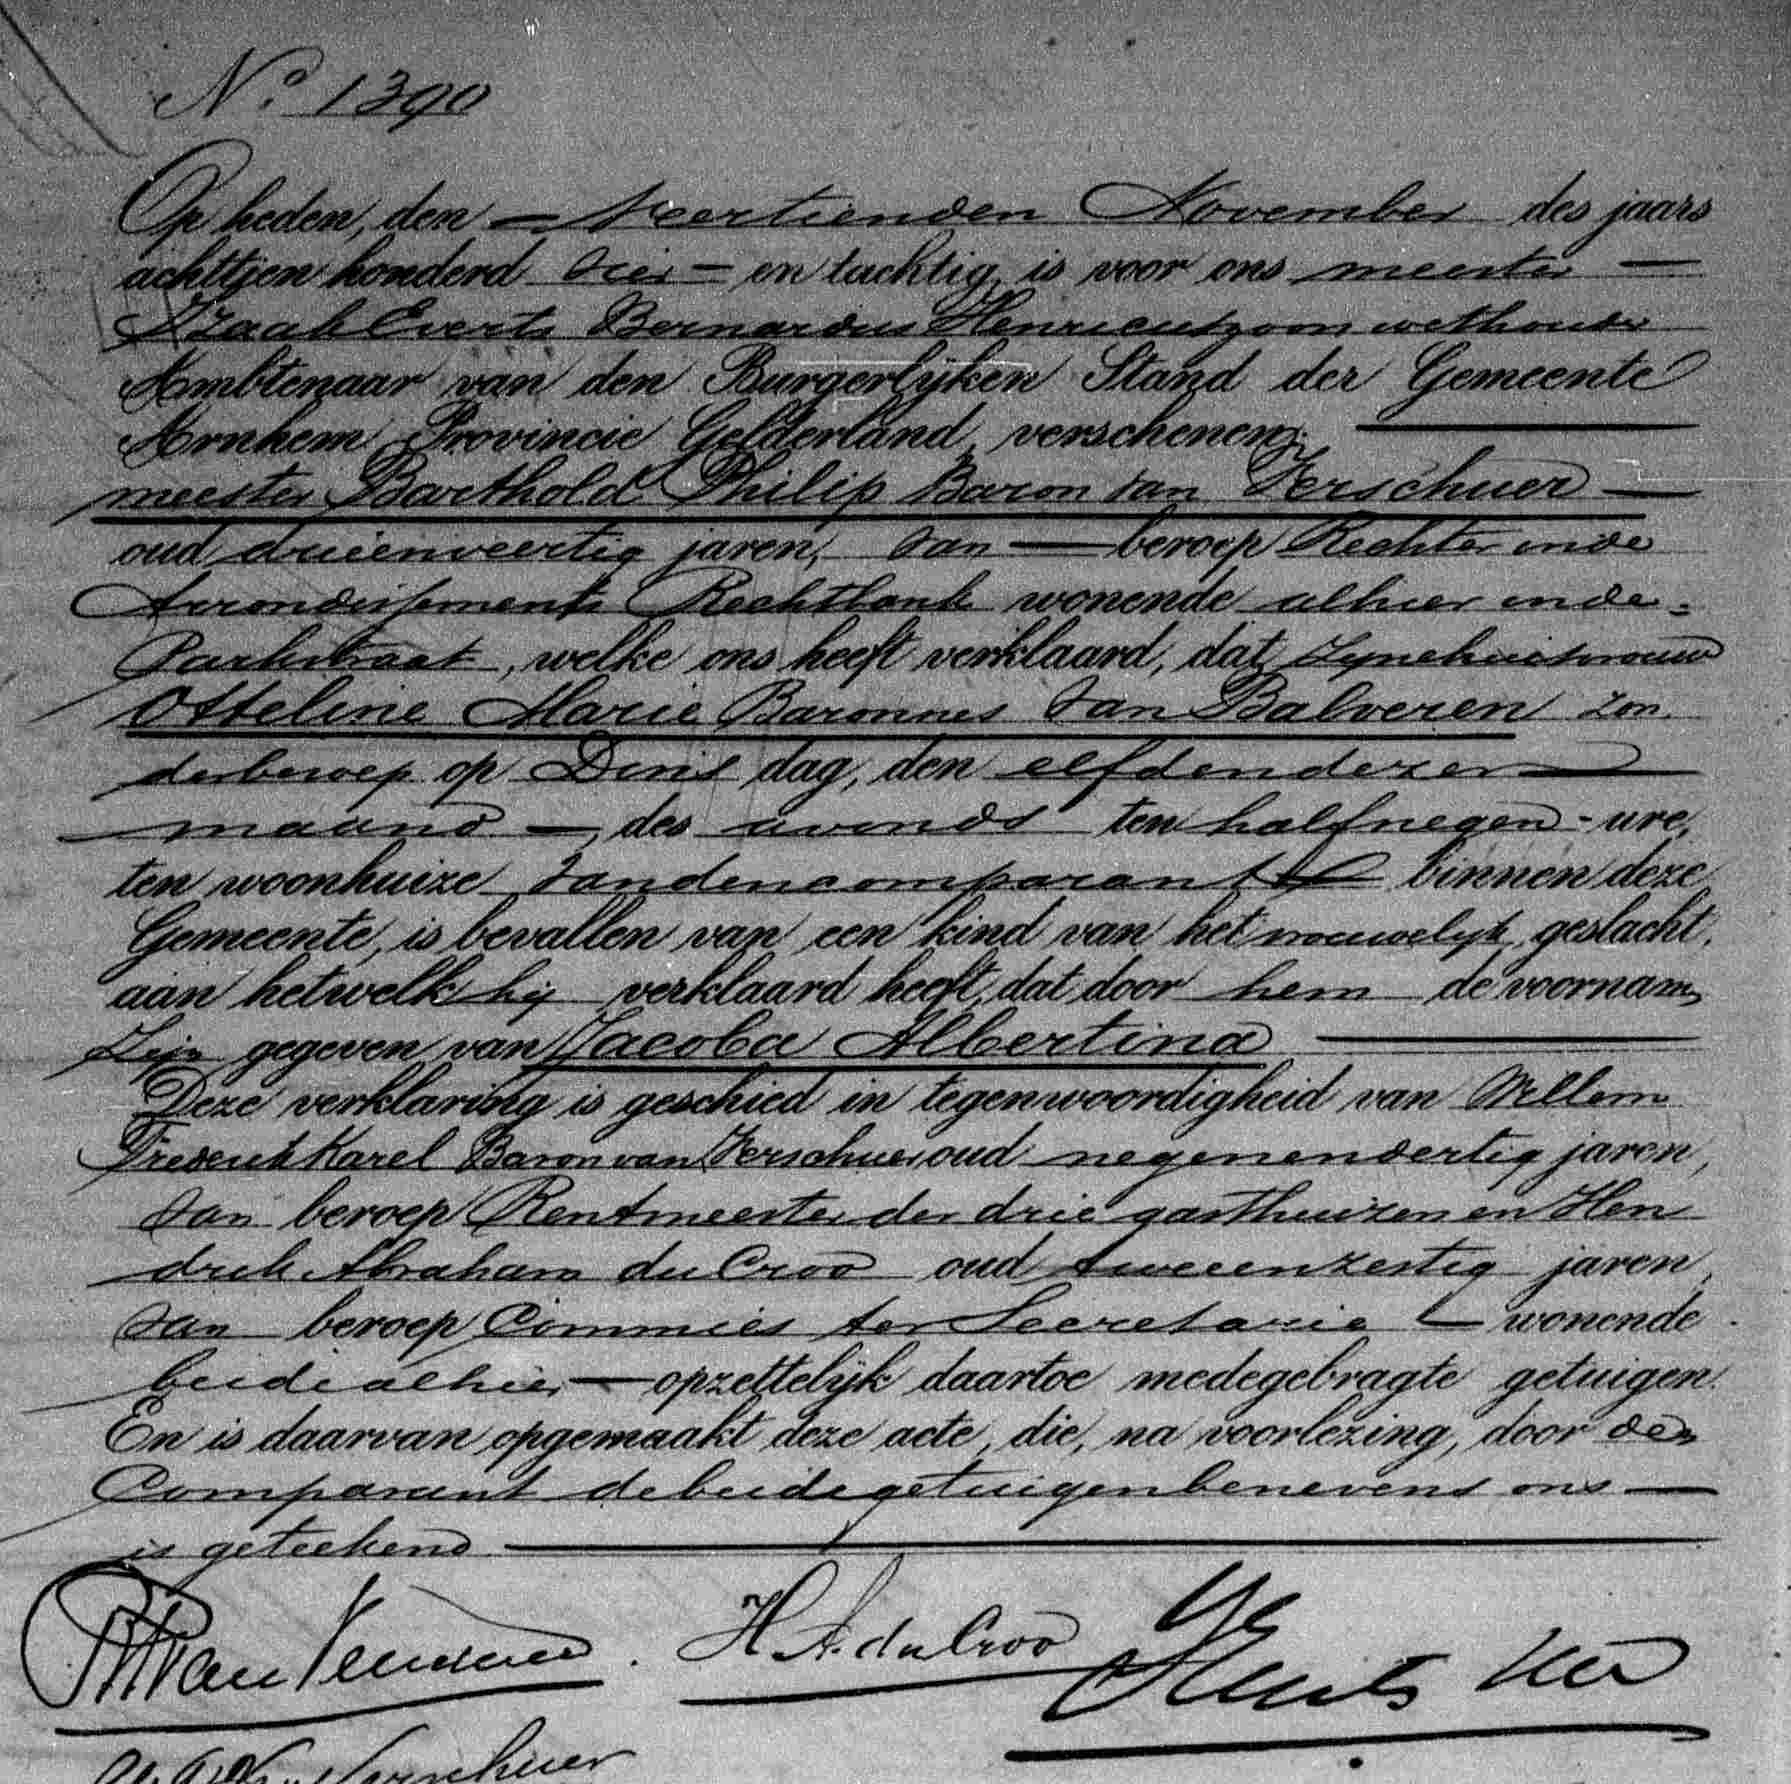 No. 1390
Op heden, den veertienden November des jaars
achttien honderd vier en tachtig, is voor ons meester
Izaak Everts Bernardus Henricuszoon wethouder
Ambtenaar van den Burgerlijken Stand der Gemeente
Arnhem Provincie Gelderland, verschenen:
meester Barthold Philip Baron van Verschuer
oud drieenveertig jaren, van beroep Rechter in de
Arrondissements Rechtbank wonende alhier in de
Parkstraat, welke ons heeft verklaard, dat zijne huisvrouw
Otteline Marie Baronnes van Balveren zon
der beroep op Dins dag, den elfden dezer
maand, des avonds ten half negen ure,
ten woonhuize van den comparant binnen deze
Gemeente, is bevallen van een kind van het vrouwelijk geslacht,
aan hetwelk hij verklaard heeft, dat door hem de voornamen
zijn gegeven van Jacoba Albertina
Deze verklaring is geschied in tegenwoordigheid van Willem
Frederik Karel Baron van Verschuer oud negenendertig jaren,
van beroep Rentmeester der drie gasthuizen en Hen
drik Abraham du Croo oud tweeenzestig jaren,
van beroep Commies ter Secretarie wonende
beide alhier opzettelijk daartoe medegebragte getuigen.
En is daarvan opgemaakt deze acte, die, na voorlezing, door den
Comparant de beide getuigen benevens ons
is geteekend
van Verschuer. H. A. du Croo
Verschuer